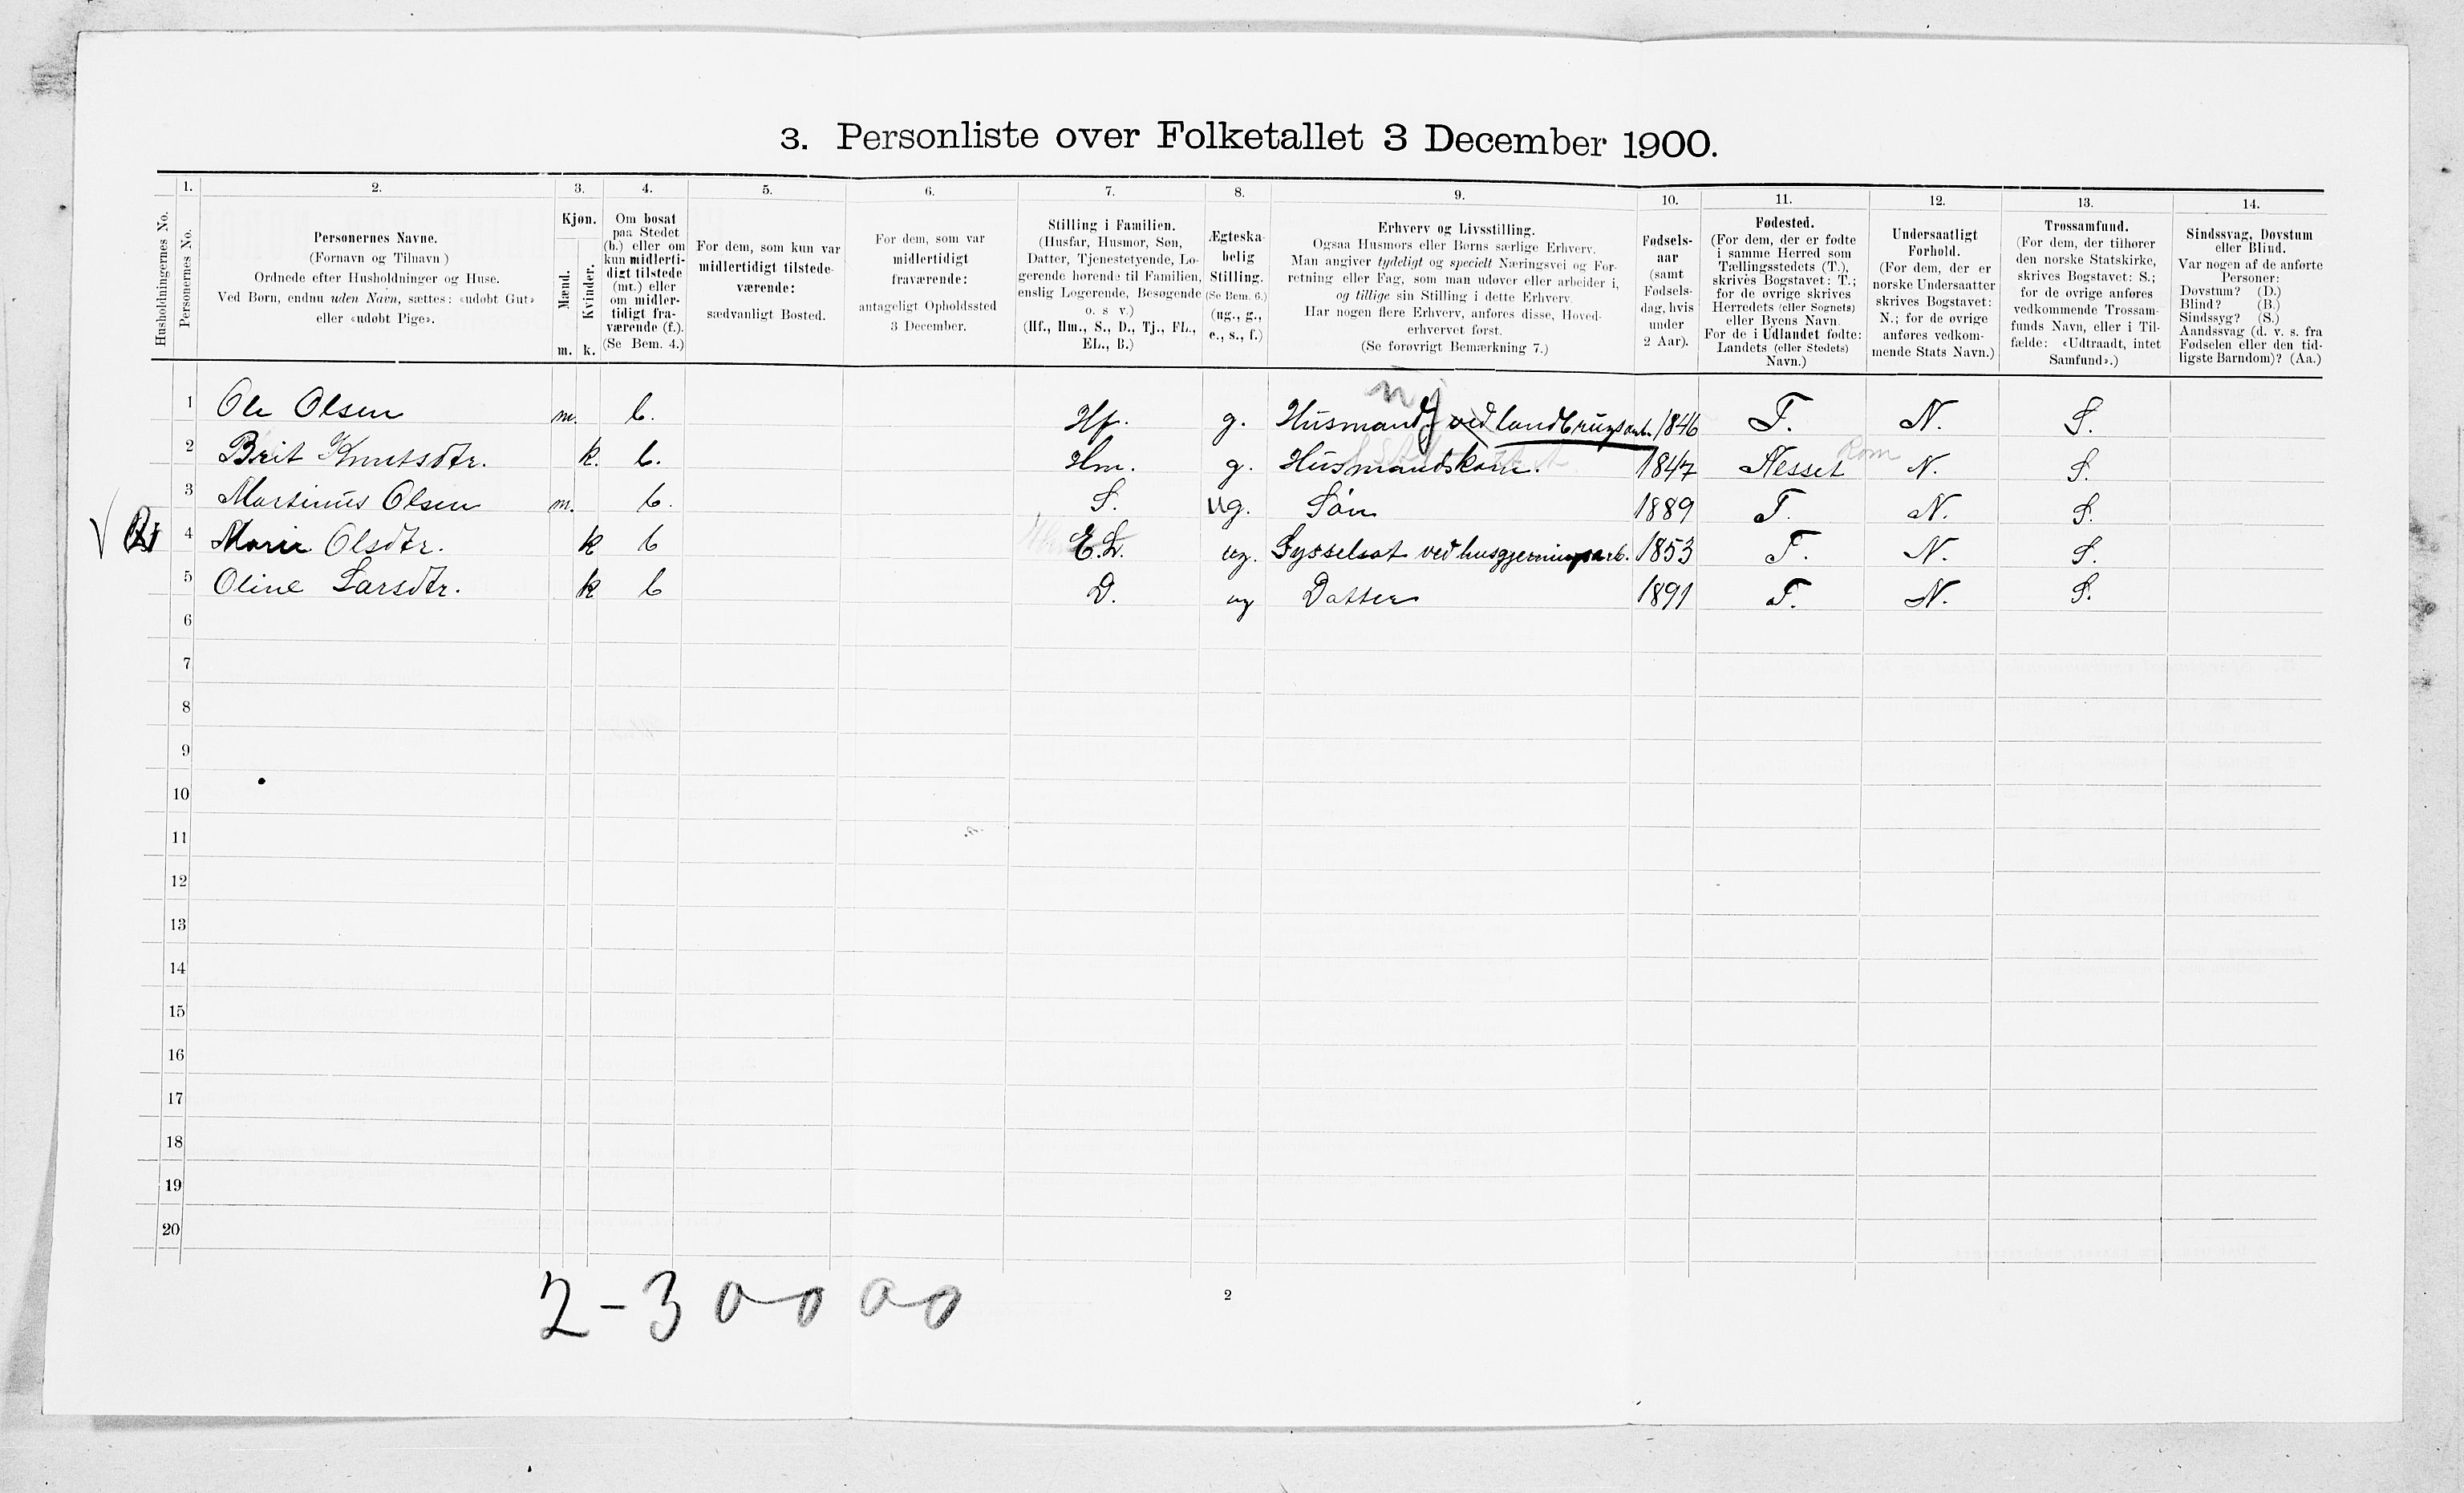 3. Personliste over Folketallet 3 December 1900.
1. 2. 3. 4. 5. 6. 7. 8. 9. 10. 11. 12. 13. 14.
Husholdningernes No.
Personernes No.
Personernes Navne.
(Fornavn og Tilnavn)
Ordnede efter Husholdninger og Huse.
Ved Børn, endnu uden Navn, sættes: «udøbt Gut»
eller «udøbt Pige».
Kjøn.
Mænd.
Kvinder.
m. k.
Om bosat
paa Stedet
(b.) eller om
kun midlerti-
digt tilstede
(mt.) eller
om midler-
tidigt fra-
værende (f.).
(Se Bem. 4.)
For dem, som kun var
midlertidigt tilstede-
værende:
sædvanligt Bosted.
For dem, som var
midlertidigt
fraværende:
antageligt Opholdssted
3 December.
Stilling i Familien.
(Husfar, Husmor, Søn,
Datter, Tjenestetyende, Lo-
gerende hørende til Familien,
enslig Logerende, Besøgende
o. s v.)
(Hf., Hm., S., D., Tj., FL.,
EL., B.)
Ægteska-
belig
Stilling.
(Se Bem. 6.)
(ug., g.,
e., s., f.)
Erhverv og Livsstilling.
Ogsaa Husmors eller Børns særlige Erhverv.
Man angiver tydeligt og specielt Næringsvei og For-
retning eller Fag, som man udøver eller arbeider i,
og tillige sin Stilling i dette Erhverv.
Har nogen flere Erhverv, anføres disse, Hoved-
erhvervet først.
(Se forøvrigt Bemærkning 7.)
Fødsels-
aar
(samt
Fødsels-
dag, hvis
under
2 Aar).
Fødested.
(For dem, der er fødte
i samme Herred som
Tællingsstedets (T.),
skrives Bogstavet: T.;
for de øvrige skrives
Herredets (eller Sognets)
eller Byens Navn.
For de i Udlandet fødte:
Landets (eller Stedets)
Navn.)
Undersaatligt
Forhold.
(For dem, der er
norske Undersaatter
skrives Bogstavet:
N.; for de øvrige
anføres vedkom-
mende Stats Navn.)
Trossamfund.
(For dem, der tilhører
den norske Statskirke,
skrives Bogstavet: S.;
for de øvrige anføres
vedkommende Trossam-
funds Navn, eller i Til-
fælde: «Udtraadt, intet
Samfund».)
Sindssvag, Døvstum
eller Blind.
Var nogen af de anførte
Personer:
Døvstum? (D.)
Blind? (B.)
Sindssyg? (S.)
Aandssvag (d. v. s. fra
Fødselen eller den tid-
ligste Barndom)? (Aa.)
1 Ole Olsen m. b. Hf. g. Husmand ved landbrugsarb. 1846 T. N. S.
2 Brit Knutsdtr. k. b. Hm. g. Husmandskone. 1847 Nesset Rom N. S.
3 Martinus Olsen m. b. S. ug. Søn 1889 T. N. S.
4 Marie Olsdtr. k b E.L. ug. Sysselsat ved husgjerningsarb. 1853 T. N. S.
5 Oline Larsdtr. k b D. ug Datter 1891 T. N. S.
6
7
8
9
10
11
12
13
14
15
16
17
18
19
20
2-3 0-0 0-0
2